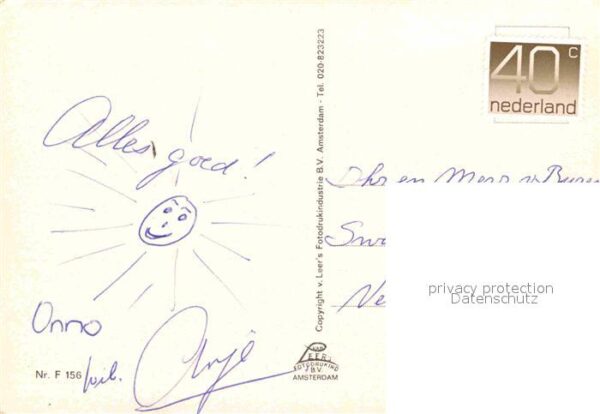 Alles goed!
Onno
Anje
Nr. F 156
Copyright v. Leer's Fotodrukindustrie B.V. Amsterdam - Tel. 020-823223
VAN
LEER
FOTODRUKIND
B.V.
AMSTERDAM
40c
nederland
Dhr en Mevr v.
privacy protection
Datenschutz